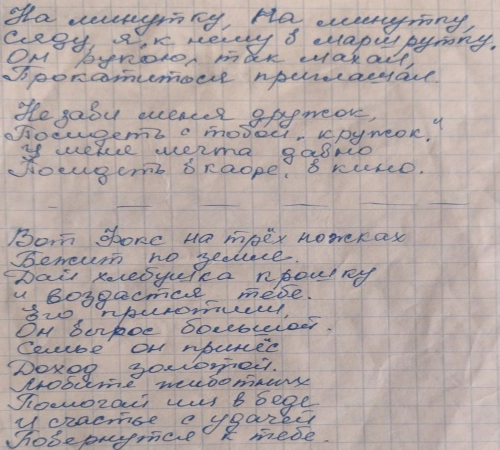 На минутку, На минутку,
Сяду, я, к нему в маршрутку.
Он рукою, так махал,
Прокатиться приглашал.
Не зави меня дружок,
Посидеть с тобой, кружок."
У меня мечта давно
Посидеть в каоре, в кино.
Вот Фокс на трёх ножках
Бежит по земле.
Дай хлебушка крошку
и воздастся тебе.
Его приютили,
Он вырос большой.
Семье он принёс
Доход золотой.
Любите животных
Помогай им в беде
И счастье с удачей
Повернутся к тебе.